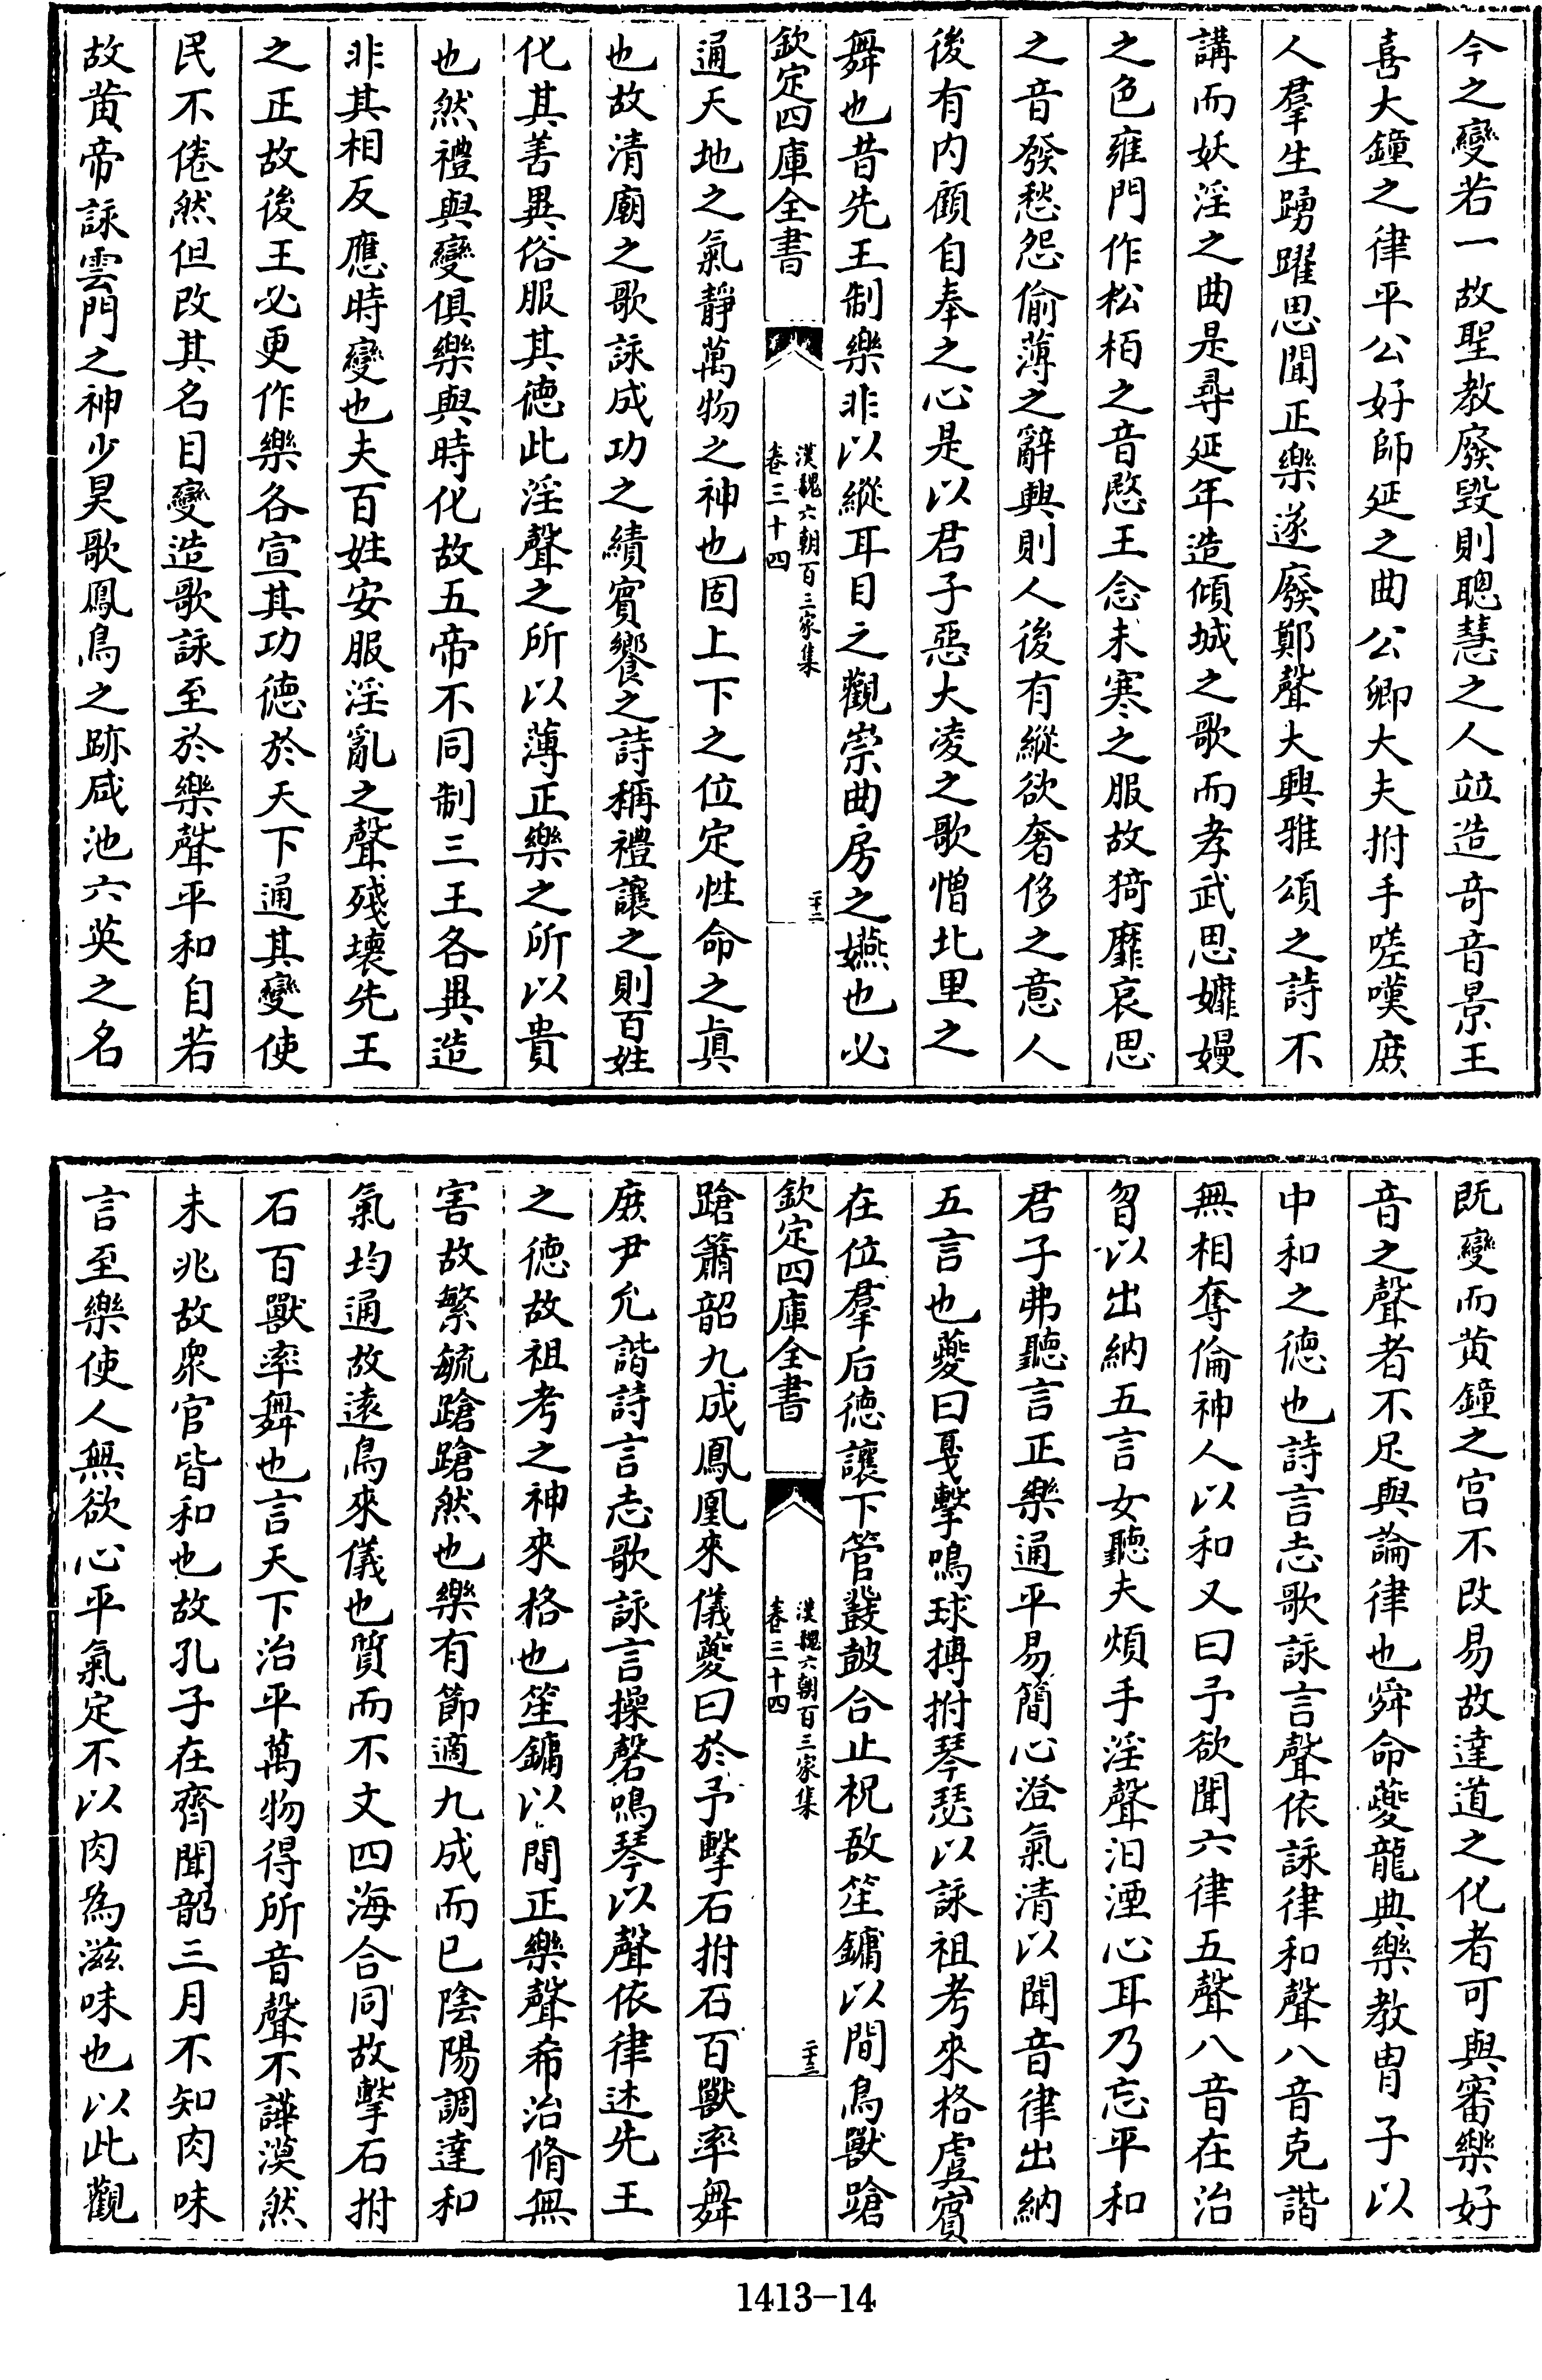 今之變若一故聖教廢毀則聰慧之人竝造奇音景王
喜大鐘之律平公好師延之曲公卿大夫拊手嗟嘆庶
人羣生踴躍思聞正樂遂廢鄭聲大興雅頌之詩不
講而妖淫之曲是尋延年造傾城之歌而孝武思嬺嫚
之色雍門作松柏之音愍王念未寒之服故猗靡哀思
之音發愁怨偷薄之辭興則人後有縱欲奢侈之意人
後有内顧自奉之心是以君子惡大凌之歌憎北里之
舞也昔先王制樂非以縱耳目之觀崇曲房之嬿也必
欽定四庫全書
漢魏六朝百三家集
卷三十四
二十二
通天地之氣靜萬物之神也固上下之位定性命之眞
也故清廟之歌詠成功之績賓饗之詩稱禮讓之則百姓
化其善異俗服其德此淫聲之所以薄正樂之所以貴
也然禮與變俱樂與時化故五帝不同制三王各異造
非其相反應時變也夫百姓安服淫亂之聲殘壞先王
之正故後王必更作樂各宣其功德於天下通其變使
民不倦然但改其名目變造歌詠至於樂聲平和自若
故黄帝詠雲門之神少昊歌鳳鳥之跡咸池六英之名
既變而黄鐘之宮不改易故達道之化者可與審樂好
音之聲者不足與論律也舜命夔龍典樂教胄子以
中和之德也詩言志歌詠言聲依詠律和聲八音克諧
無相奪倫神人以和又曰予欲聞六律五聲八音在治
曶以出納五言女聽夫煩手淫聲汩湮心耳乃忘平和
君子弗聽言正樂通平易簡心澄氣清以聞音律出納
五言也夔曰戛擊鳴球搏拊琴瑟以詠祖考來格虞賓
在位羣后德讓下管鼗鼓合止柷敔笙鏞以間鳥獸蹌
欽定四庫全書
漢魏六朝百三家集
卷三十四
二十三
蹌簫韶九成鳳凰來儀夔曰於予擊石拊石百獸率舞
庶尹允諧詩言志歌詠言操磬鳴琴以聲依律述先王
之德故祖考之神來格也笙鏞以間正樂聲希治脩無
害故繁毓蹌蹌然也樂有節適九成而已陰陽調達和
氣均通故遠鳥來儀也質而不文四海合同故擊石拊
石百獸率舞也言天下治平萬物得所音聲不譁漠然
未兆故衆官皆和也故孔子在齊聞韶三月不知肉味
言至樂使人無欲心平氣定不以肉為滋味也以此觀
1413-14